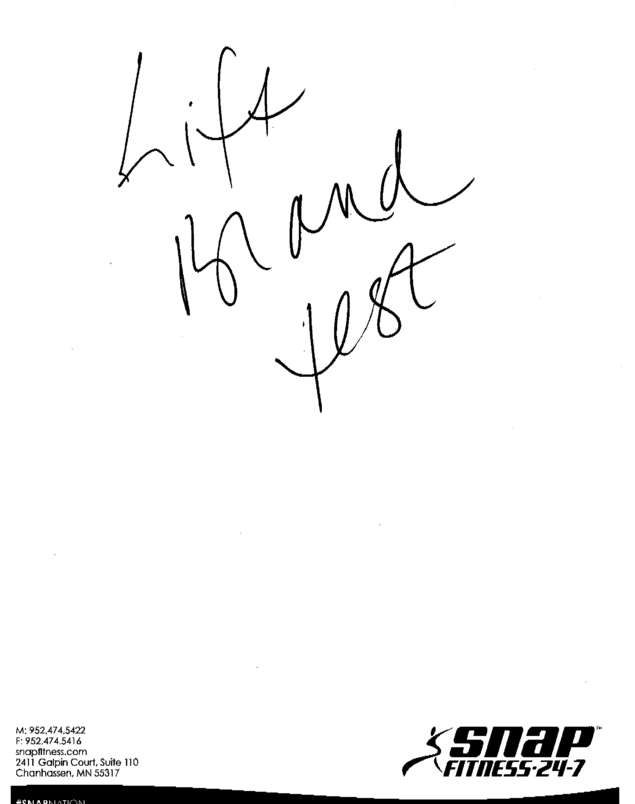 Lift
Brand
test
M: 952.474.5422
F: 952.474.5416
snapfitness.com
2411 Galpin Court, Suite 110
Chanhassen, MN 55317
snap
FITNESS·24-7
#SNAPNATION